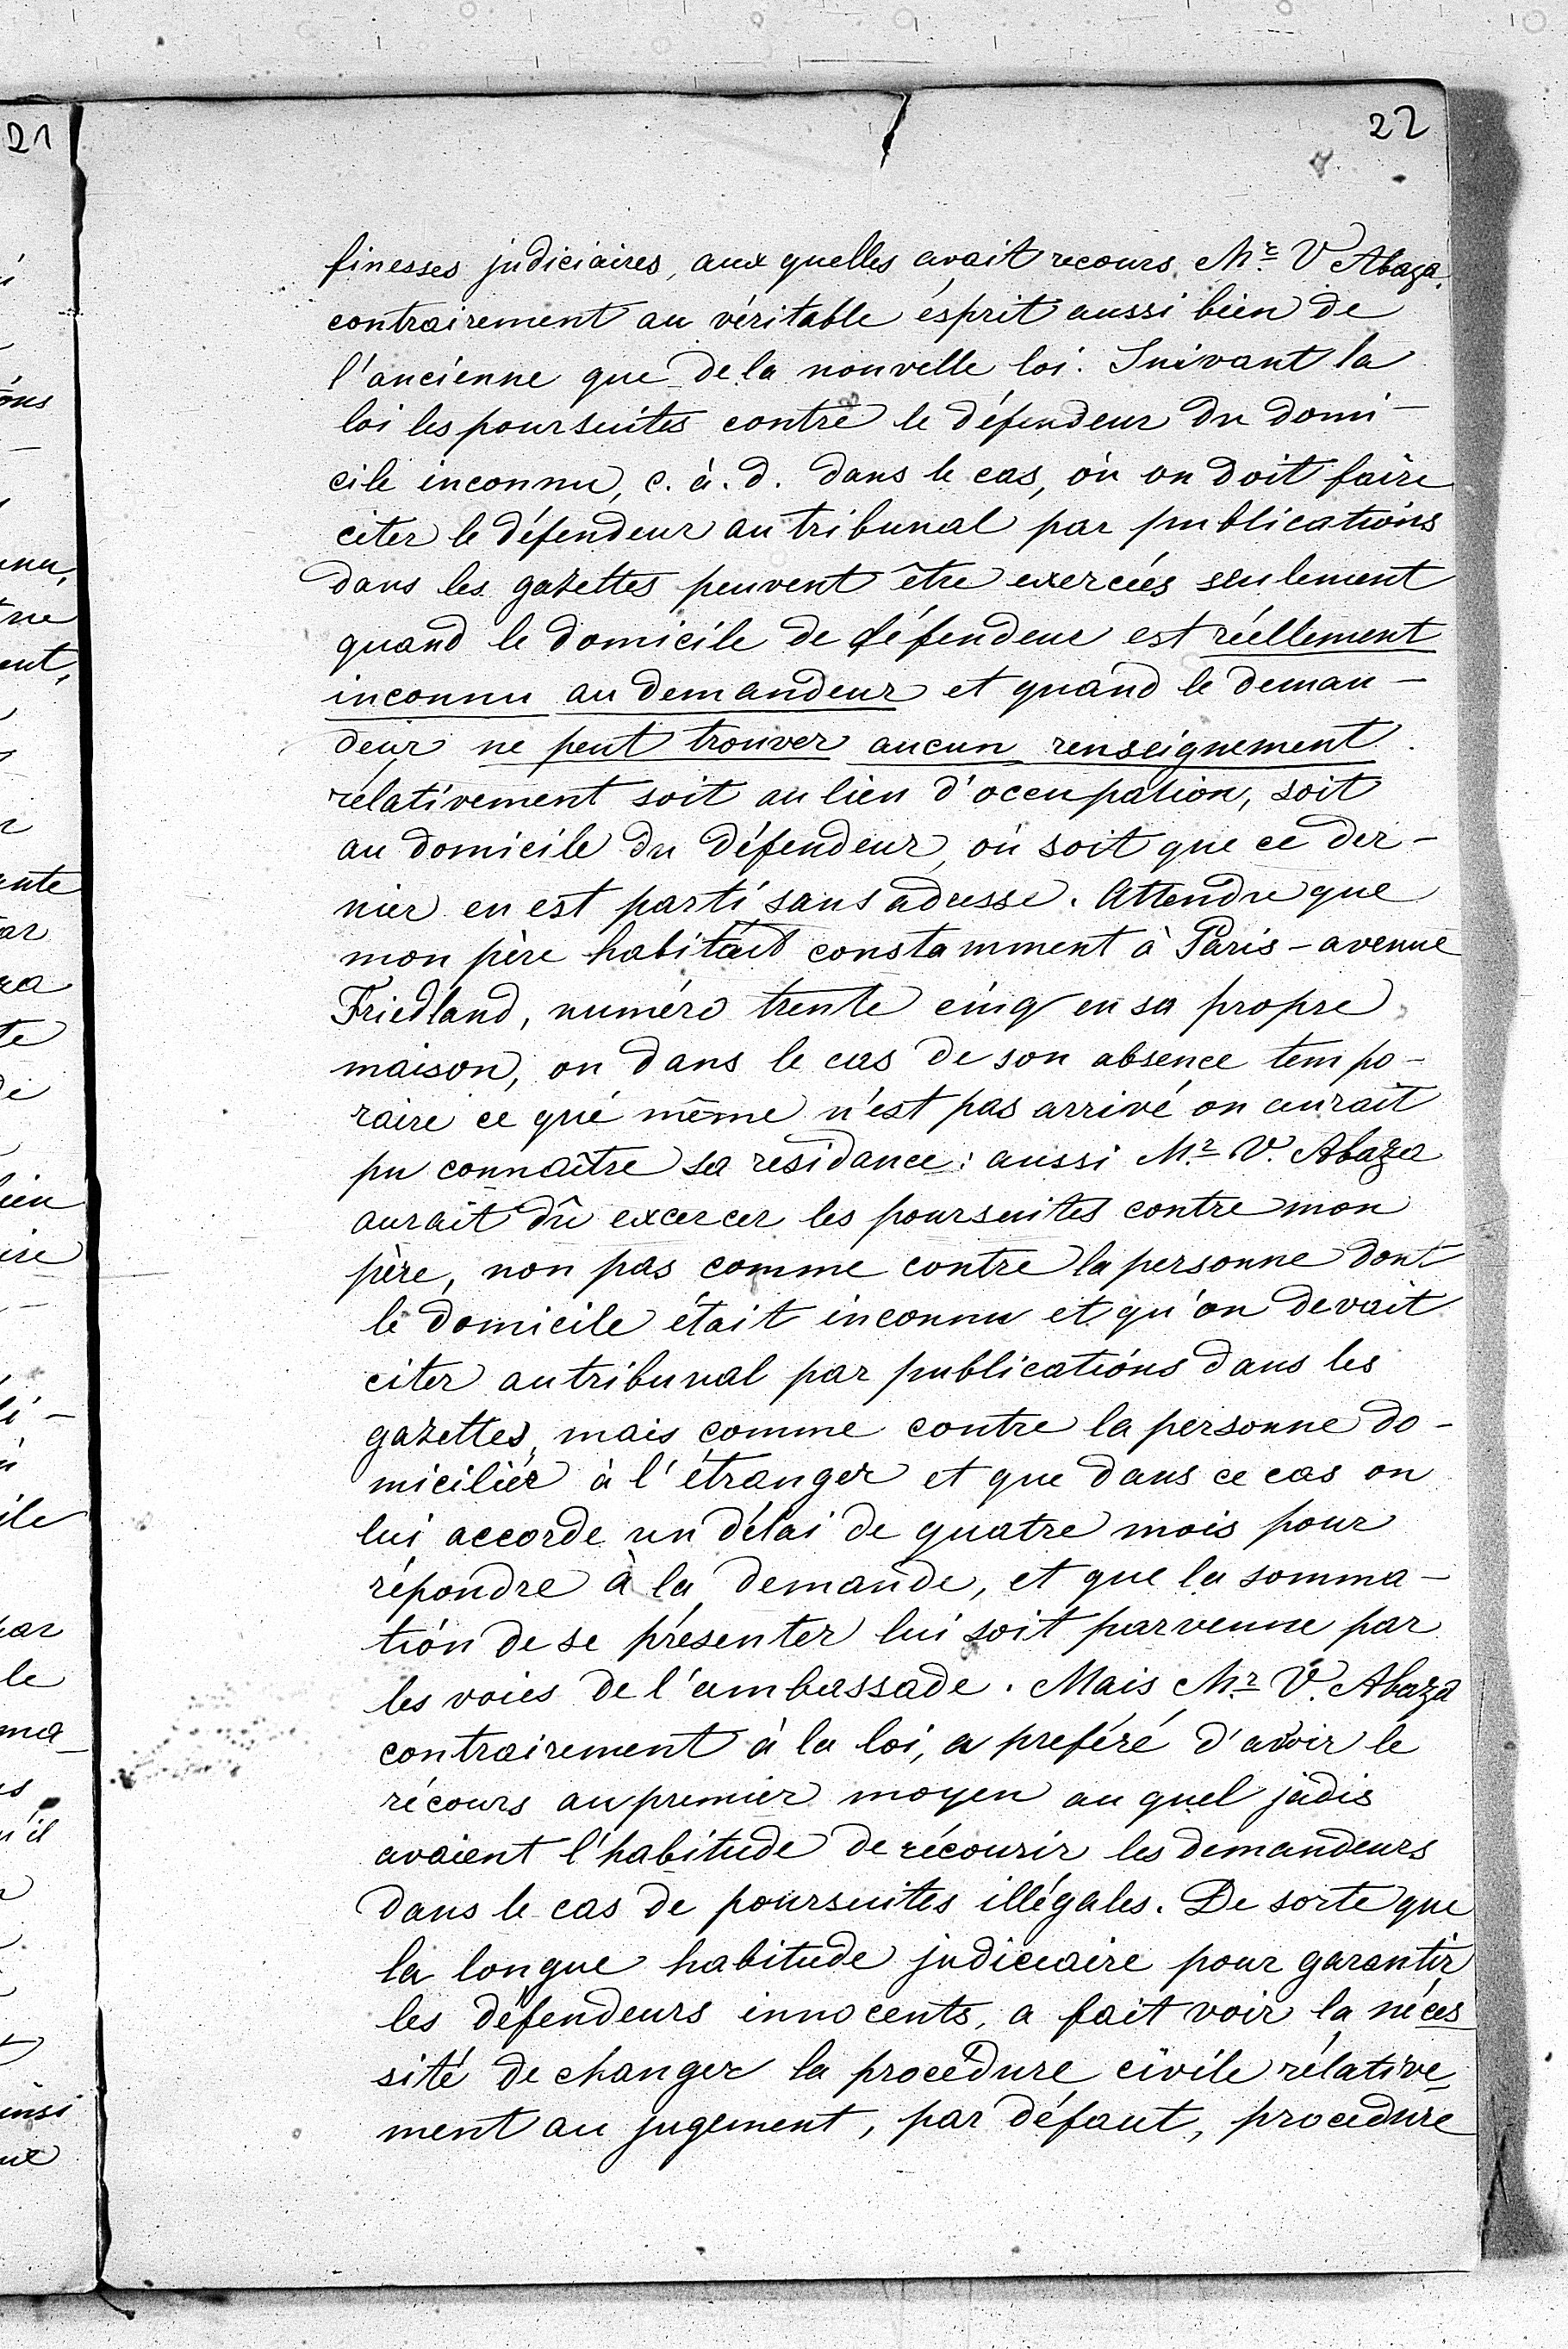 22
finesses judiciaires, aux quelles avait recours Mr V Abaza.
contrairement au véritable ésprit aussi bien de
l'ancienne que de la nouvelle loi. Suivant la
loi les poursuites contre le défendeur du domi-
cile inconnu, c. à. d. dans le cas, où on doit faire
citer le défendeur au tribunal par publications
dans les gazettes peuvent être exercées seulement
quand le domicile de défendeur est réellement
inconnu au demandeur et quand le deman-
deur ne peut trouver aucun renseignement
rélativement soit au lieu d'occupation, soit
au domicile du défendeur, où soit que ce der-
nier en est parti sans adresse. Attendre que
mon père habitait constamment à Paris - avenue
Friedland, numéro trente cinq en sa propre
maison, ou dans le cas de son absence tempo-
raire ce qui même n'est pas arrivé on aurait
pu connaître sa residance: aussi Mr V. Abaza
aurait dû excercer les poursuites contre mon
père, non pas comme contre la personne dont
le domicile était inconnu et qu'on devait
citer au tribunal par publications dans les
gazettes, mais comme contre la personne do-
miciliée à l'étranger et que dans ce cas on
lui accorde un délai de quatre mois pour
répondre à la demande, et que la somma-
tion de se présenter lui soit parvenue par
les voies de l'ambassade. Mais Mr V. Abaza
contrairement à la loi, a preféré d'avoir le
récours au premier moyen au quel jadis
avaient l'habitude de récourir les demandeurs
dans le cas de poursuites illégales. De sorte que
la longue habitude judiciaire pour garantir
les défendeurs innocents, a fait voir la néces
sité de changer la procédure civile rélative-
ment au jugement, par défaut, procedure